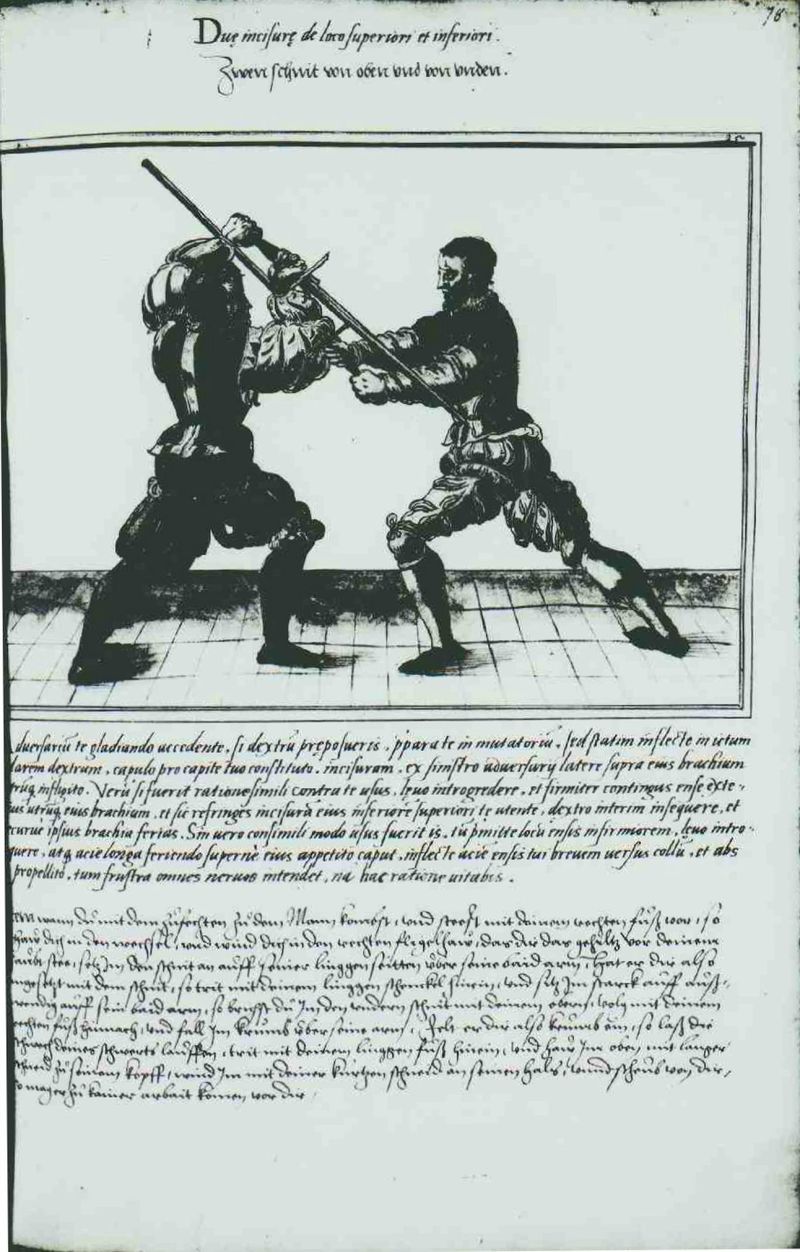 78
Duę incisurę de loco superiori et inferiori.
Zwen schnit von oben vnd von vnden.
duersariū te gladiando accedente, si dextrū preposueris, ppara te in mutatoriū, sed statim inflecte in ictum
larem dextrum, capulo pro capite tuo constituto, incisuram, ex sinistro aduersarij latere supra eius brachium
infligito. Verū si fuerit ratione simili contra te usus, lęuo introgredere, et firmiter contingas ense exte=
ius utrūq eius brachium, et sic refringes incisurā eius inferiorē superiori te utente, dextro interim insequere, et
curue ipsius brachia ferias. Sin uero consimili modo usus fuerit is, tū pmitte locū ensis infirmiorem, lęuo intro=
quere, atq acie longa feriendo supernè eius appetito caput, inflecte aciē ensis tui breuem uersus collū, et abs
propellito, tum frustra omnes neruos intendet, na hac ratione uitabis.
wann du mit dem zufechten zu dem Mann kombst, vnd steest mit deinem rechten fuß vor, so
dich in den wechsel, vnd wind dich in den rechten fligelhaw, das dir das gehültz vor deinem
haubt stee, setz Im den schnit an auff seiner linggen seitten vber seine baid arm, hat er dir also
angesetzt mit dem schnit, so trit mit deinem linggen schenckel hinein, vnd setz Im starck auff auß=
wendig auff sein baid arm, so brichst du Im den vndern schnit mit deinem obern, volg mit deinem
rechten fuß hinnach, vnd fall Im krumb vber seine arm, Felt er dir also krumb ein, so laß die
schwech deines schwerts lauffen, trit mit deinem linggen fuß hinein, vnd haw Im oben mit langer
schneid zu seinem kopff, wind Im mit deiner kurtzen schneid an seinen hals, vnnd scheub von dir,
so mag er zu kainer arbait komen vor dir,